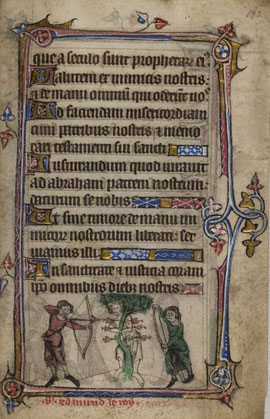 que a seculo sunt prophetar ei
Salutem ex inimicis nostris:
et de manu omnium qui oderunt nos
Ad faciendam misericordiam
cum patribus nostris: et memo
rari testamenti sui sancti
Iusiurandum quod iuravit
ad abraham patrem nostrum:
daturum se nobis
Ut sine timore de manu ini
micorum nostrorum liberati: ser
viamus illi
In sanctitate et iusticia coram
ipso omnibus diebus nostris
edmund le roy